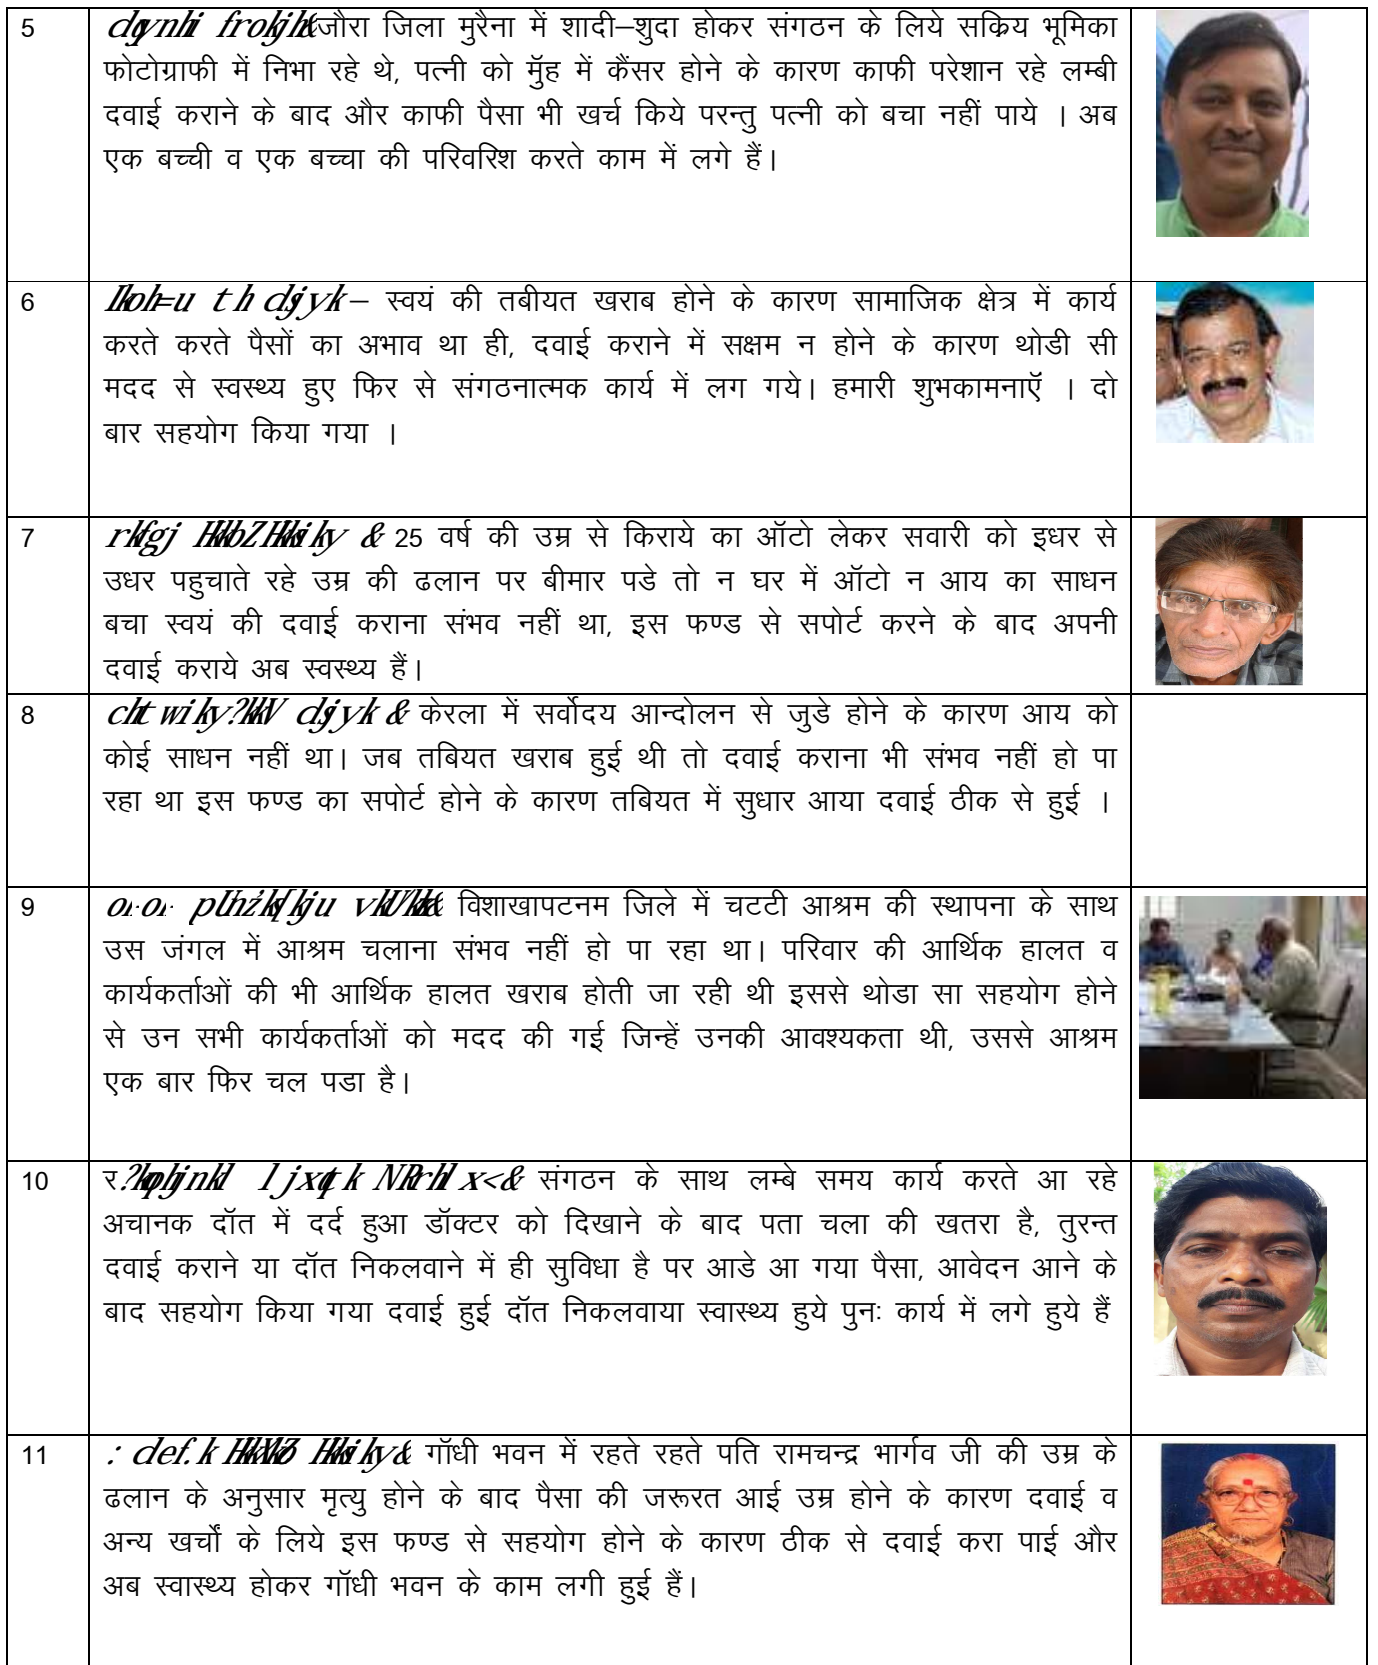 5
जौरा जिला मुरैना में शादी–शुदा होकर संगठन के लिये सक्रिय भूमिका
फोटोग्राफी में निभा रहे थे, पत्नी को मुॅह में कैंसर होने के कारण काफी परेशान रहे लम्बी
दवाई कराने के बाद और काफी पैसा भी खर्च किये परन्तु पत्नी को बचा नहीं पाये । अब
एक बच्ची व एक बच्चा की परिवरिश करते काम में लगे हैं।
6
– स्वयं की तबीयत खराब होने के कारण सामाजिक क्षेत्र में कार्य
करते करते पैसों का अभाव था ही, दवाई कराने में सक्षम न होने के कारण थोडी सी
मदद से स्वस्थ्य हुए फिर से संगठनात्मक कार्य में लग गये। हमारी शुभकामनाऍ । दो
बार सहयोग किया गया ।
7
& 25 वर्ष की उम्र से किराये का ऑटो लेकर सवारी को इधर से
उधर पहुचाते रहे उम्र की ढलान पर बीमार पडे तो न घर में ऑटो न आय का साधन
बचा स्वयं की दवाई कराना संभव नहीं था, इस फण्ड से सपोर्ट करने के बाद अपनी
दवाई कराये अब स्वस्थ्य हैं।
8
& केरला में सर्वोदय आन्दोलन से जुडे होने के कारण आय को
कोई साधन नहीं था। जब तबियत खराब हुई थी तो दवाई कराना भी संभव नहीं हो पा
रहा था इस फण्ड का सपोर्ट होने के कारण तबियत में सुधार आया दवाई ठीक से हुई ।
9
विशाखापटनम जिले में चटटी आश्रम की स्थापना के साथ
उस जंगल में आश्रम चलाना संभव नहीं हो पा रहा था। परिवार की आर्थिक हालत व
कार्यकर्ताओं की भी आर्थिक हालत खराब होती जा रही थी इससे थोडा सा सहयोग होने
से उन सभी कार्यकर्ताओं को मदद की गई जिन्हें उनकी आवश्यकता थी, उससे आश्रम
एक बार फिर चल पडा है।
10
संगठन के साथ लम्बे समय कार्य करते आ रहे
अचानक दॉत में दर्द हुआ डॉक्टर को दिखाने के बाद पता चला की खतरा है, तुरन्त
दवाई कराने या दॉत निकलवाने में ही सुविधा है पर आडे आ गया पैसा, आवेदन आने के
बाद सहयोग किया गया दवाई हुई दॉत निकलवाया स्वास्थ्य हुये पुनः कार्य में लगे हुये हैं
11
गॉधी भवन में रहते रहते पति रामचन्द्र भार्गव जी की उम्र के
ढलान के अनुसार मृत्यु होने के बाद पैसा की जरूरत आई उम्र होने के कारण दवाई व
अन्य खर्चों के लिये इस फण्ड से सहयोग होने के कारण ठीक से दवाई करा पाई और
अब स्वास्थ्य होकर गॉधी भवन के काम लगी हुई हैं।